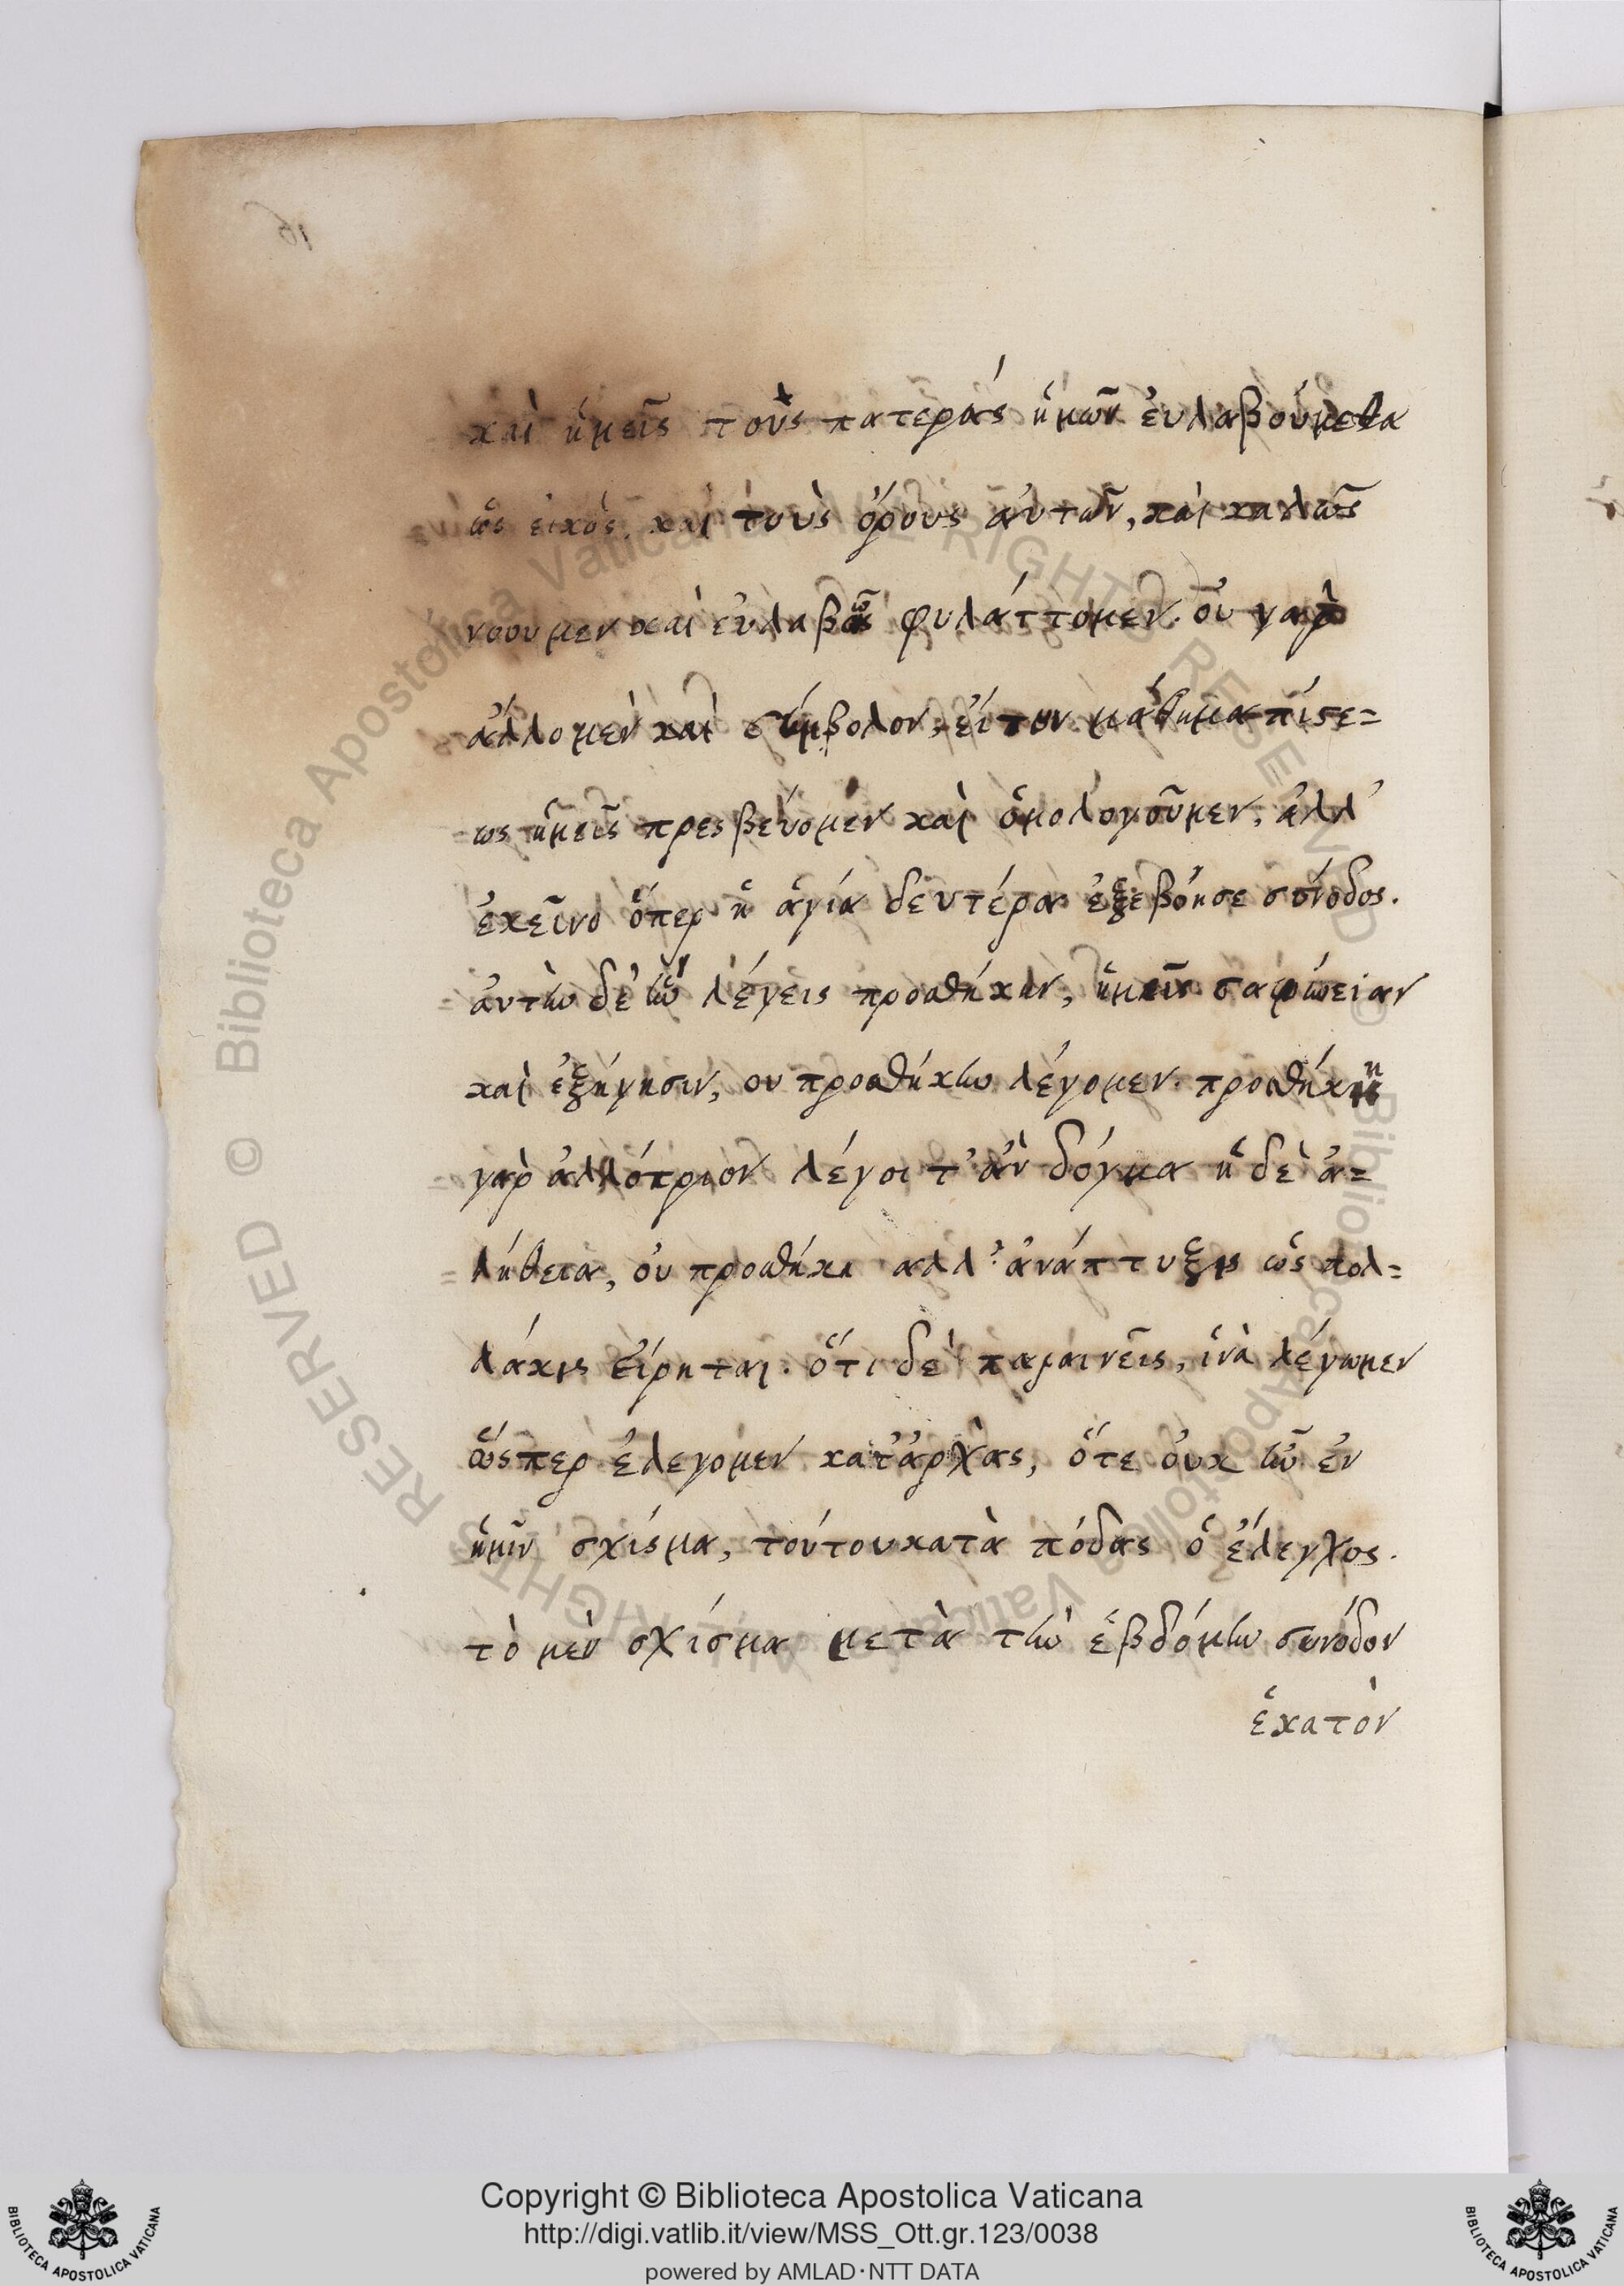 καὶ ἡμεῖς τοὺς πατεράς ἡμῶν ἐυλαβούμεθα
ὡς εικὸς, καὶ τοὺς ὅρους ἀυτῶν, καὶ καλῶς
νοουμεν καὶ ἐυλαβῶς φυλάττομεν. ὀυ γαρ
ἄλλο μὲν καὶ σύμβολον, ἐίτουν μάθημα πίστε=
ως ἡμεῖς πρεσβέυομεν καὶ ὁμολογοῦμεν, ἀλλ᾽
ἐκεῖνο ὅπερ ἡ ἁγία δευτέρα ἐξεβόησε σύνοδος.
ἀυτὴν δὲ ἣν λέγεις προσθήκην, ἡμεῖς σαφήνειαν
καὶ ἐξήγησιν, ου προσθήκην λέγομεν. προσθήκη
γὰρ ἀλλότριον λέγοι τ᾽ ἂν δόγμα ἡ δὲ ἀ=
λήθεια, ὀυ προσθήκη αλλ᾽ ἀνάπτυξις ὡς πολ=
λάκις ἐίρηται. ὅτι δὲ παραινεῖς, ἱνὰ λέγωμεν
ὥσπερ ἐλέγομεν κατ᾽ἀρχὰς, ὅτε ὀυκ ἦν ἐν
ἡμῖν σχίσμα, τούτου κατὰ πόδας ὁ ἔλεγχος.
τὸ μὲν σχίσμα μετὰ τὴν ἑβδόμην συνόδον
ἑκατὸν
16
© Biblioteca Apostolica Vaticana ALL RIGHTS RESERVED
© Biblioteca Apostolica Vaticana ALL RIGHTS RESERVED
Copyright © Biblioteca Apostolica Vaticana
http://digi.vatlib.it/view/MSS_Ott.gr.123/0038
powered by AMLAD·NTT DATA
BIBLIOTECA APOSTOLICA VATICANA
BIBLIOTECA APOSTOLICA VATICANA